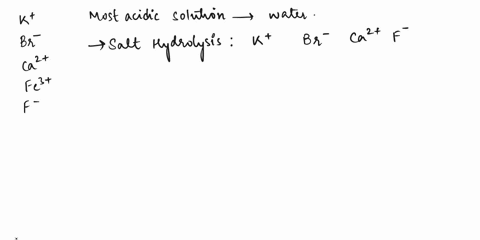 K⁺ Most acidic solution → water.
Br⁻ → Salt Hydrolysis : K⁺ Br⁻ Ca²⁺ F⁻
Ca²⁺
Fe³⁺
F⁻